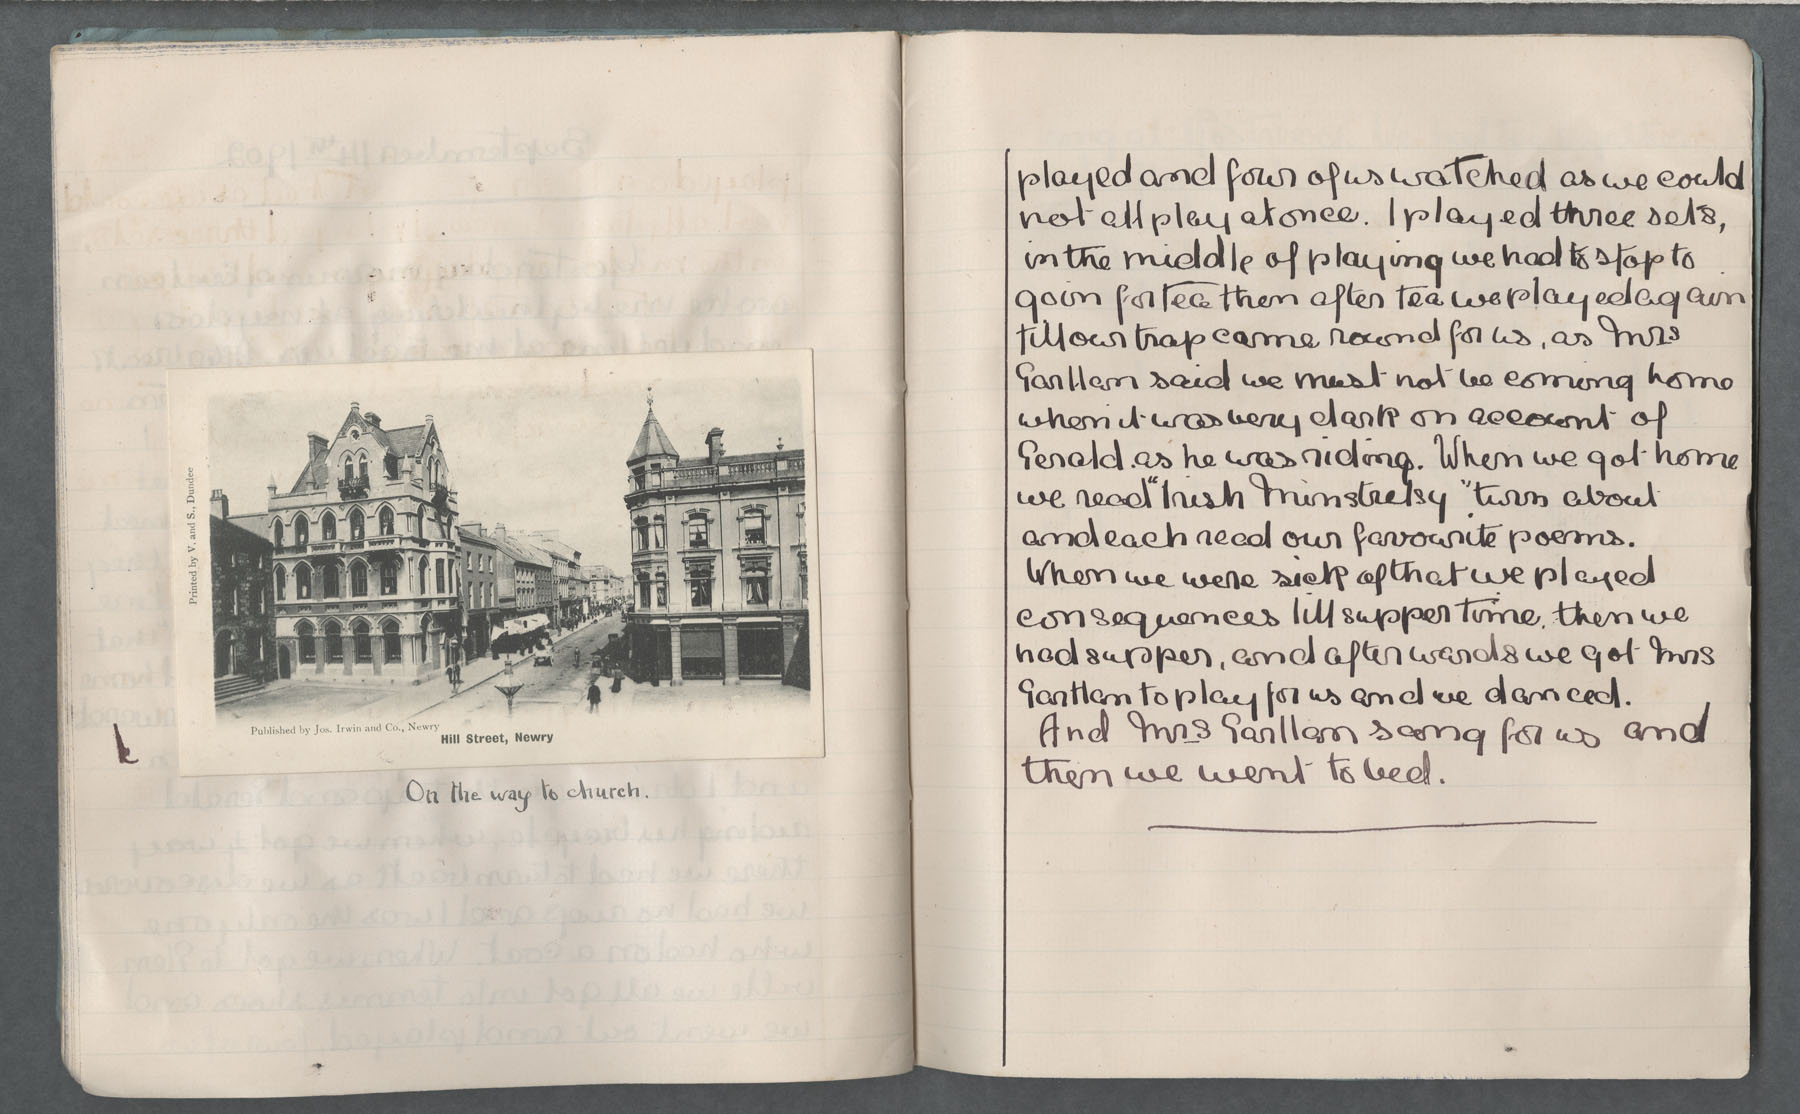 Printed by V. and S., Dundee
Published by Jos. Irwin and Co., Newry
Hill Street, Newry
On the way to church.
played and four of us watched as we could
not all play at once. I played three sets,
in the middle of playing we had to stop to
go in for tea then after tea we played again
till our trap came round for us, as Mrs
Gartlan said we must not be coming home
when it was very dark on account of
Gerald. as he was riding. When we got home
we read "Irish Minstrelsy" turn about
and each read our favourite poems.
When we were sick of that we played
consequences till supper time, then we
had supper, and afterwards we got Mrs
Gartlan to play for us and we danced.
And Mrs Gartlan sang for us and
then we went to bed.